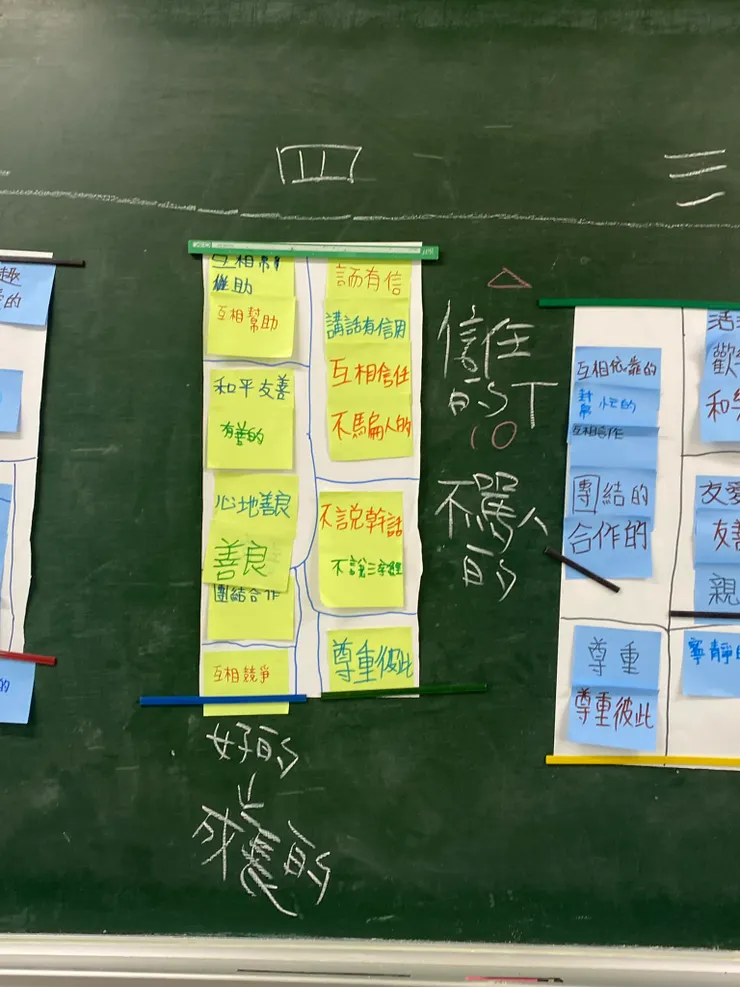 四
三
趣
的
的
互相幫
催助
互相幫助
和平友善
友善的
心地善良
善良
團結合作
互相競爭
言而有信
講話有信用
互相信任
不騙人的
不說幹話
不說三字經
尊重彼此
信任
的T
10
不罵人
的
好的
的
互相依靠的
互相合作
團結的
合作的
尊重
尊重彼此
活
歡
和樂
友愛
友善
親
寧靜的